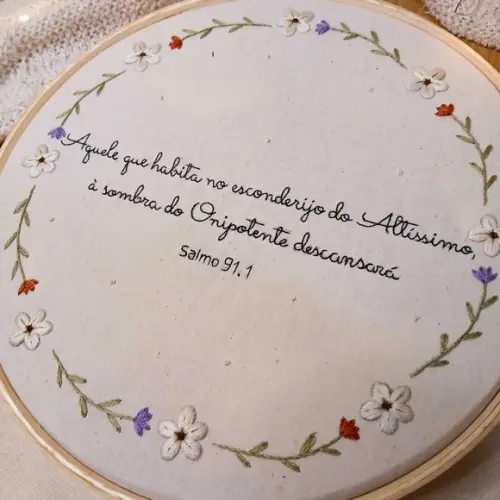 Aquele que habita no esconderijo do Altíssimo,
à sombra do Onipotente descansará
Salmo 91.1